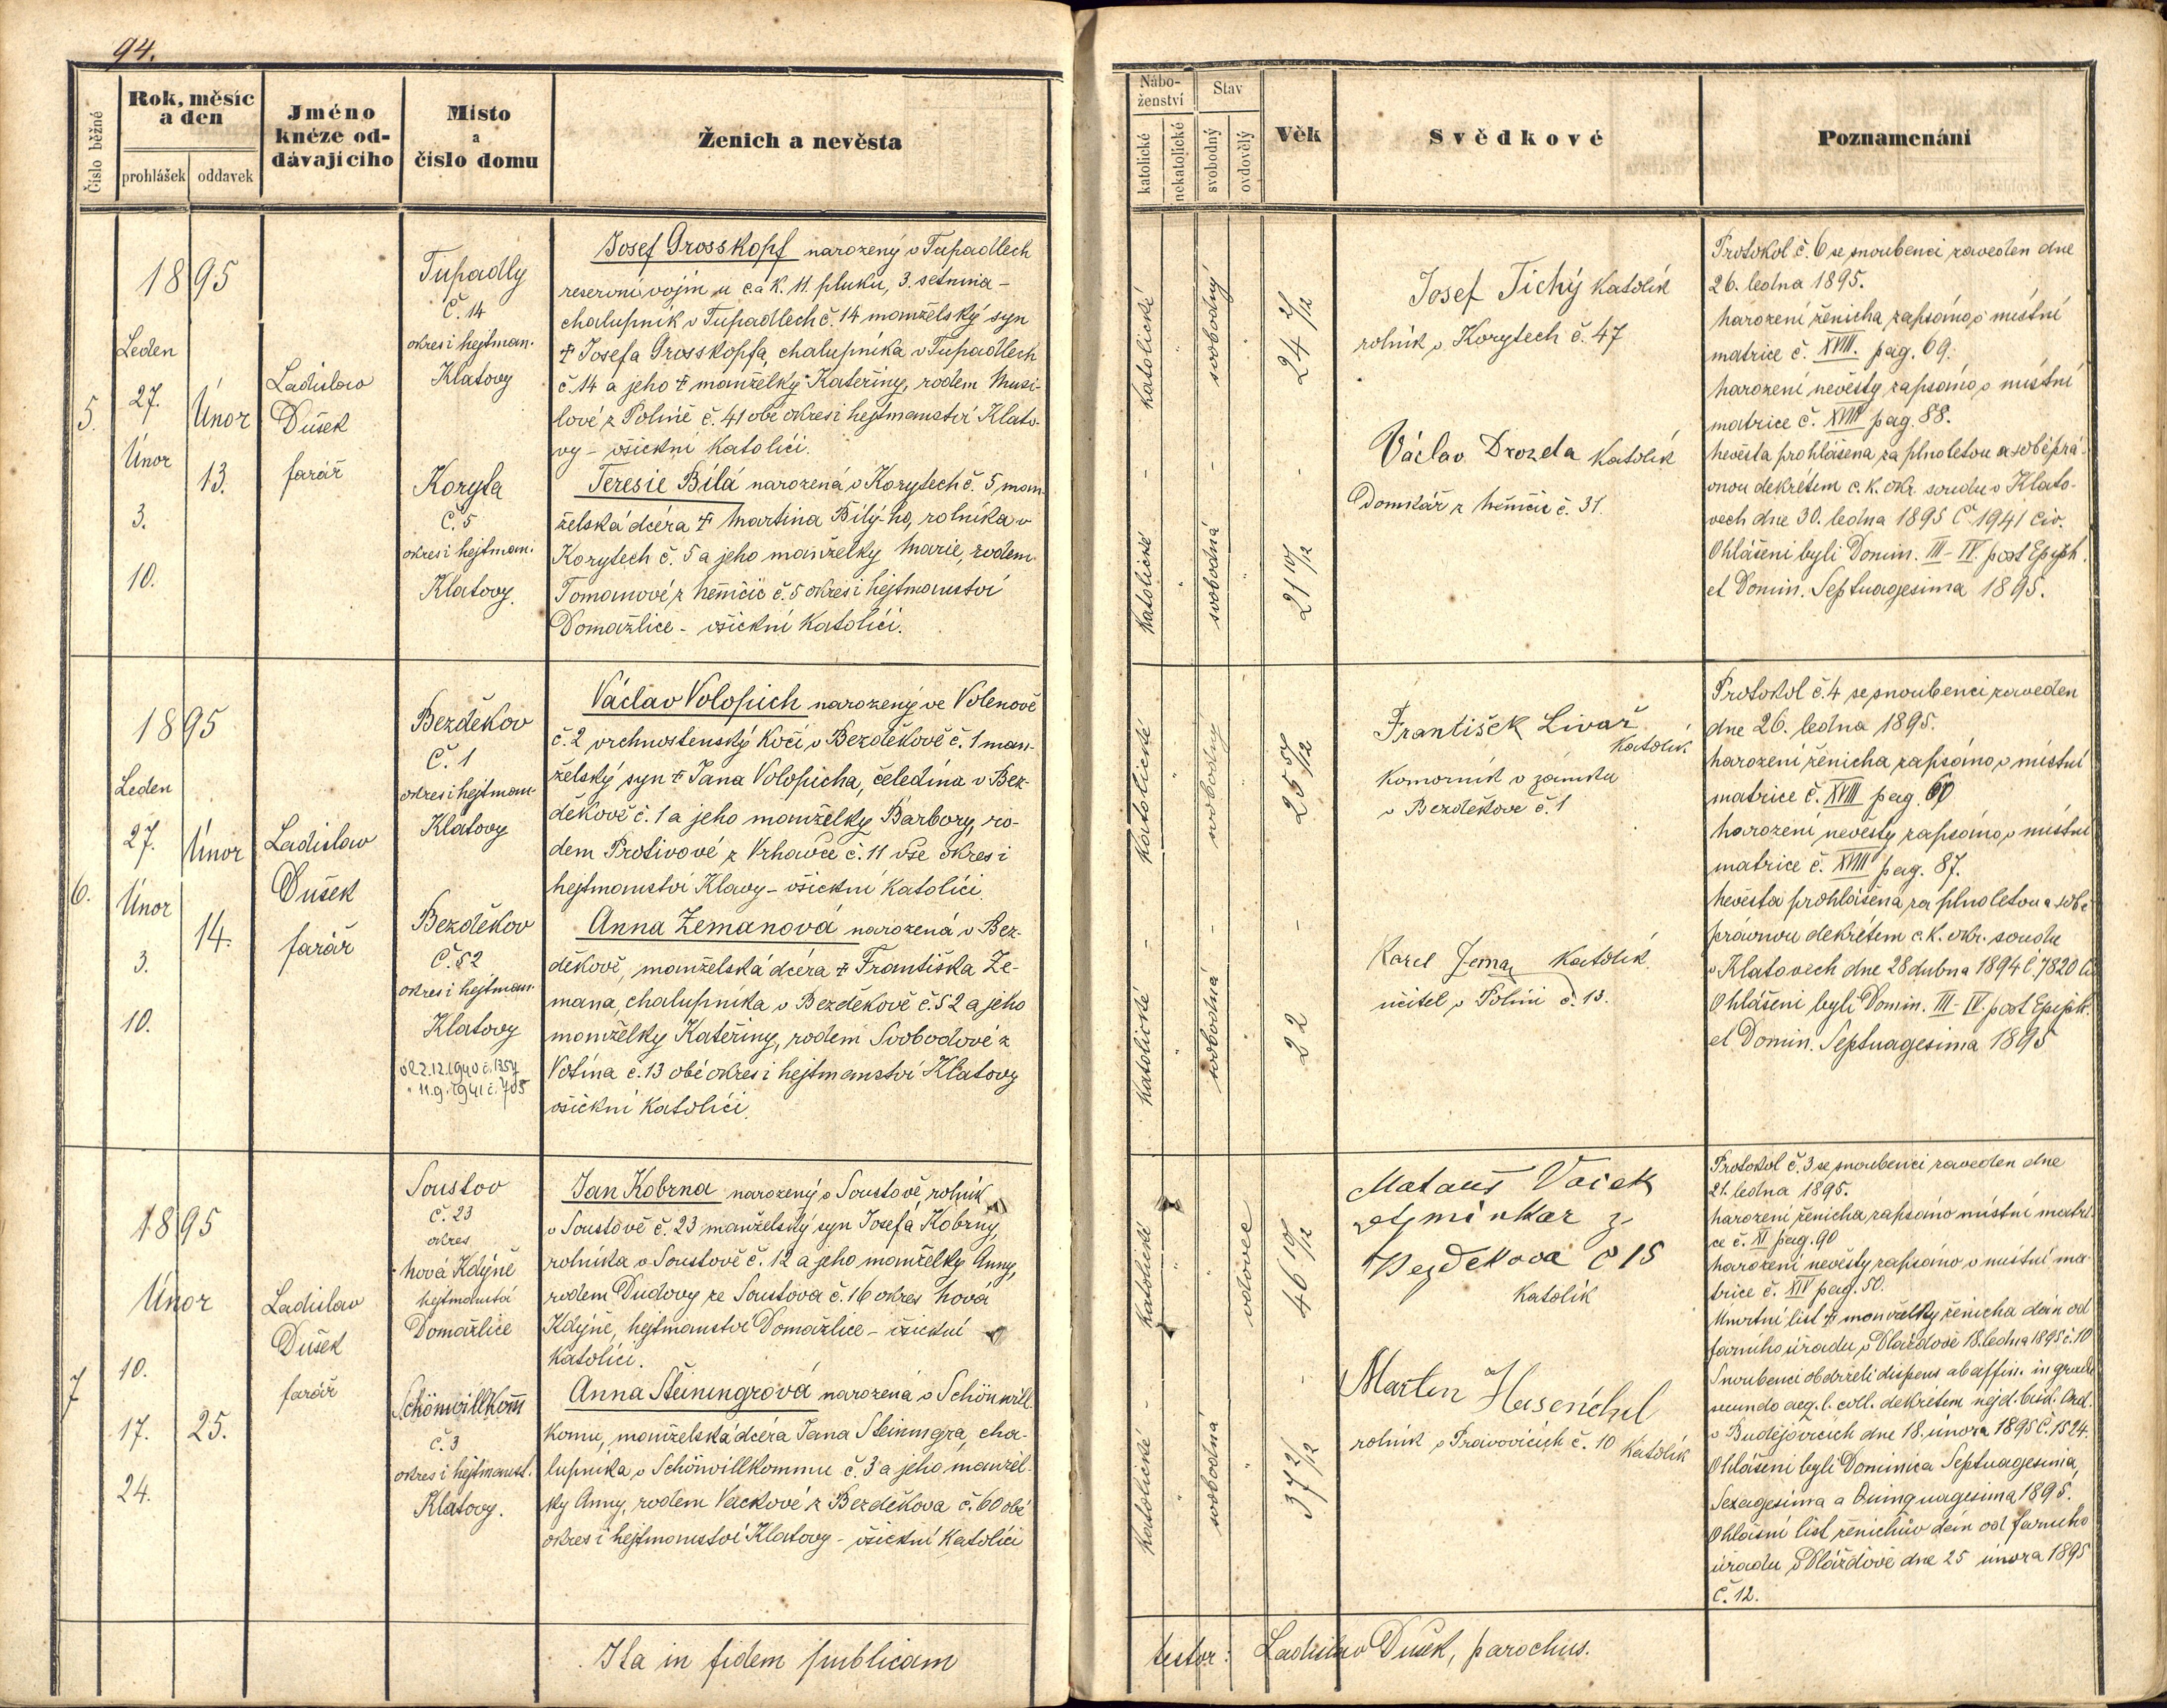 94.
Číslo běžné
Rok, měsíc
a den
prohlášek
oddavek
Jméno
knéze od-
dávajícího
Místo
a
číslo domu
Ženich a nevěsta
Nábo-
ženství
katolické
nekatolické
Stav
svobodný
ovdovělý
Věk
Svědkové
Poznamenání
5.
1895
Leden
27.
Únor
3.
10.
Únor
13.
Ladislav
Dušek
farář
Tupadly
Č. 14
okres i hejtman.
Klatovy
Koryta
Č. 5
okres i hejtman.
Klatovy.
Josef Grosskopf narozený v Tupadlech
reservní vojín u c. a k. 11. pluku, 3. setnina -
chalupník v Tupadlech č. 14 manželský syn
† Josefa Grosskopfa, chalupníka v Tupadlech
č. 14 a jeho † manželky Kateřiny, rodem Musi-
lové z Polině č. 41 obé okres i hejtmanství Klato-
vy - všickni katolíci.
Teresie Bílá narozená v Korytech č. 5, man-
želská dcéra † Martina Bílý-ho, rolníka v
Korytech č. 5 a jeho manželky Marie, rodem
Tomanové z Němčic č. 5 okres i hejtmanství
Domažlice - všickni katolíci.
katolické
svobodný
24 2/12
katolické
svobodná
21 10/12
Josef Tichý katolík
rolník v Korytech č. 47
Václav Drozda katolík
Domkář z Němčic č. 31.
Protokol č. 6 se snoubenci zaveden dne
26. ledna 1895.
Narození ženicha zapsáno v místní
matrice č. XVIII. pag. 69.
Narození nevěsty zapsáno v místní
matrice č. XVIII pag. 88.
Nevěsta prohlášena za plnoletou a sobě prá-
vnou dekrétem c. k. okr. soudu v Klato-
vech dne 30. ledna 1895 Č. 1941 civ.
Ohlášeni byli Domin. III - IV. post Epiph.
et Domin. Septuagesima 1895.
6.
1895
Leden
27.
Únor
3.
10.
Únor
14.
Ladislav
Dušek
farář
Bezděkov
Č. 1
okres i hejtman
Klatovy
Bezděkov
Č. 52
okres i hejtman.
Klatovy
2.12.1940 č. 1357
" 11.9.1941 č. 705
Václav Volopich narozený ve Volenově
č. 2 vrchnostenský kočí v Bezděkově č. 1 man-
želský syn † Jana Volopicha, čeledína v Bez-
děkově č. 1 a jeho manželky Barbory, ro-
dem Protivové z Vrhavče č. 11 vše okres i
hejtmanství Klavy - všickni katolíci.
Anna Zemanová narozená v Bez-
děkově, manželská dcéra † Františka Ze-
mana, chalupníka v Bezděkově č. 52 a jeho
manželky Kateřiny, rodem Svobodové z
Votína č. 13 obé okres i hejtmanství Klatovy
všickni katolíci.
katolické
svobodný
25 5/12
katolické
svobodná
22
František Livař
katolík
komorník v zámku
v Bezděkově č. 1
Karel Zeman katolík.
učitel v Polini č. 13.
Protokol č. 4 se snoubenci zaveden
dne 26. ledna 1895.
Narození ženicha zapsáno v místní
matrice č. XVIII pag. 60
Narození nevěsty zapsáno v místní
matrice č. XVIII pag. 87.
Nevěsta prohlášena za plnoletou a sobě
právnou dekrétem c. k. okr. soudu
v Klatovech dne 28 dubna 1894 č. 7820
Ohlášeni byli Domin. III - IV. post Epiph.
et Domin. Septuagesima 1895
7
1895
Únor
10.
17.
24.
25.
Ladislav
Dušek
farář
Soustov
č. 23
okres
Nová Kdýně
hejtmanství
Domažlice
Schönwillkom̄
č. 3
okres i hejtmanst.
Klatovy.
Jan Kobrna narozený v Soustově, rolník
v Soustově č. 23 manželský syn Josefa Kobrny,
rolníka v Soustově č. 12 a jeho manželky Anny,
rodem Dudovy ze Soustova č. 16 okres Nová
Kdýně, hejtmanství Domažlice - všickni
katolíci.
Anna Steiningrová narozená v Schönwill-
komu, manželská dcéra Jana Steiningra, cha-
lupníka v Schönwillkommu č. 3 a jeho manžel-
ky Anny, rodem Vackové z Bezděkova č. 60 obé
okres i hejtmanství Klatovy - všickni katolíci
katolické
vdovec
46 10/12
katolické
svobodná
37 2/12
Mataus Vacek
z
Bezdekova č 15
katolík
Martin
rolník v č. 10 katolík
Protokol č. 3 se snoubenci zaveden dne
21. ledna 1895.
Narození ženicha zapsáno místní matri-
ce č. XI pag. 90
Narození nevěsty zapsáno v místní ma-
trice č. XIV pag. 50.
Úmrtní list † manželky ženicha dán od
farního úřadu v Mlázdově 18. ledna 1895 č. 10
Snoubenci obdrželi dispens ab affin. in gradu
secundo aeq. l. coll. dekrétem nejd. bisk. Ord.
v Budějovicích dne 18. února 1895 Č. 1524.
Ohlášeni byli Dominica Septuagesima,
Sexagesima a Quinquagesima 1895.
Ohlašní list ženichův dán od farního
úřadu v Mlázdově dne 25 února 1895
Č. 12.
Ita in fidem publicam
testor: Ladislav Dušek, parochus.